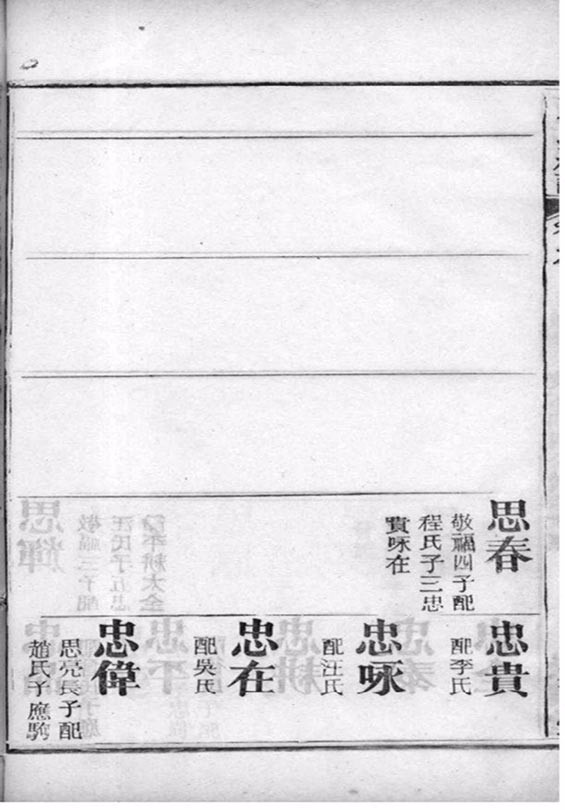 思春
敬福四子配
程氏子三忠
貴咏在
忠貴
配李氏
忠咏
配汪氏
忠在
配吳氏
忠偉
思亮長子配
趙氏子應駒